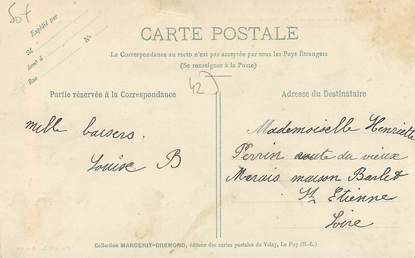 50f
Expédié par
M
demt à
Rue
N°
CARTE POSTALE
La Correspondance au recto n'est pas acceptée par tous les Pays Étrangers
(Se renseigner à la Poste)
42
Partie réservée à la Correspondance
mille baisers.
Louise B
Adresse du Destinataire
Mademoiselle Henriette
Perrin route du vieux
Marais maison Barlet
St Etienne
Loire
Collection MARGERIT-BREMOND, éditeur des cartes postales du Velay, Le Puy (H.-L.)